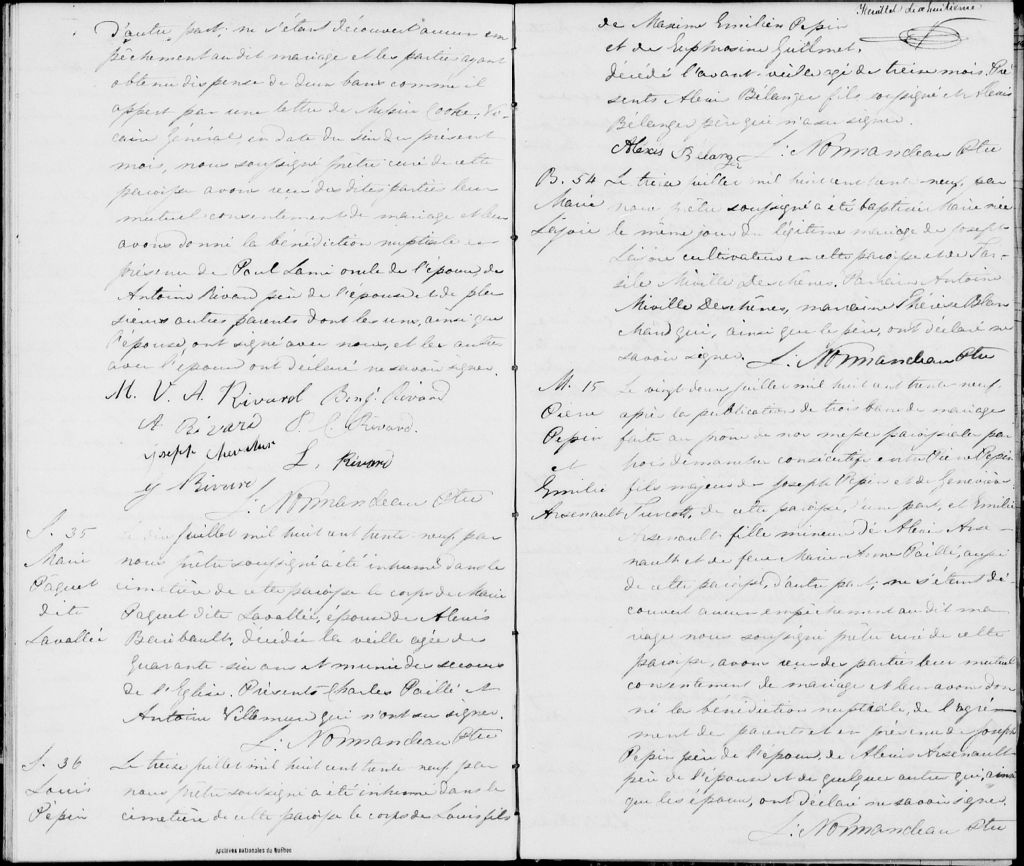 d'autre part; ne s'étant découvert aucun em
pêchement au dit mariage et les parties ayant
obtenu dispense de deux bans comme il
appert par une lettre de Messire Cooke, Vi
caire Général, en date du six du présent
mois, nous soussigné prêtre curé de cette
paroisse avons reçu des dites parties leur
mutuel consentement de mariage et leur
avons donné la bénédiction nuptiale en
présence de Paul Lami oncle de l'époux de
Antoine Rivard père de l'épouse et de plu
sieurs autres parents dont les uns, ainsi que
l'épouse, ont signé avec nous, et les autres
avec l'époux ont déclaré ne savoir signer.
M. V. A. Rivard Benj. Rivard
A. Rivard P. C. Rivard.
Joseph
L. Rivard
Rivard
L. Normandeau Ptre
S. 35
Marie
Paquet
dite
Lavallée
Le dix juillet mil huit cent trente-neuf, par
nous prêtre soussigné a été inhumé dans le
cimetière de cette paroisse le corps de Marie
Paquet dite Lavallée, épouse de Alexis
Baribault, décédée la veille agée de
quarante-six ans et munie des secours
de l'Eglise. Présents Charles Paillé et
Antoine Villemure qui n'ont su signer.
L. Normandeau Ptre
S. 36
Louis
Pepin
Le treize juillet mil huit cent trente-neuf par
nous prêtre soussigné a été inhumé dans le
cimetière de cette paroisse le corps de Louis fils
Archives nationales du Québec
Feuillet dixhuitième
de Maxime Emilien Pepin
et de Euphrosine Guilmet,
décédé l'avant-veille agé de treize mois. Pré
sents Alexis Bélanger fils soussigné et Alexis
Bélanger père qui n'a su signer.
Alexis L. Normandeau Ptre
B. 54
Marie
Lajoie
Le treize juillet mil huit cent trente-neuf, par
nous prêtre soussigné a été baptisée Marie née
le même jour du légitime mariage de Joseph
Lajoie cultivateur en cette paroisse et de Tar-
sile Miville Deschenes. Parrain Antoine
Miville Deschênes, marraine Thérèse Blan
chard qui, ainsi que le père, ont déclaré ne
savoir signer. L. Normandeau Ptre
M. 15
Pierre
Pepin
et
Emilie
Arsenault
Le vingt deux juillet mil huit cent trente-neuf
après la publication de trois bans de mariage
faite au prône de nos messes paroissiales par
trois dimanches consécutifs entre Pierre Pepin
fils majeur de Joseph Pepin et de Geneviève
Turcott, de cette paroisse, d'une part, et Emilie
Arsenault fille mineure de Alexis Arse-
nault et de feue Marie Anne Paillé, aussi
de cette paroisse, d'autre part; ne s'étant dé-
couvert aucun empêchement au dit ma-
riage nous soussigné prêtre curé de cette
paroisse, avons reçu des parties leur mutuel
consentement de mariage et leur avons don
né la bénédiction nuptiale, de l'agré-
ment de parents et en présence de Joseph
Pepin père de l'époux, de Alexis Arsenault
père de l'épouse et de quelques autres qui, ainsi
que les époux, ont déclaré ne savoir signer.
L. Normandeau Ptre